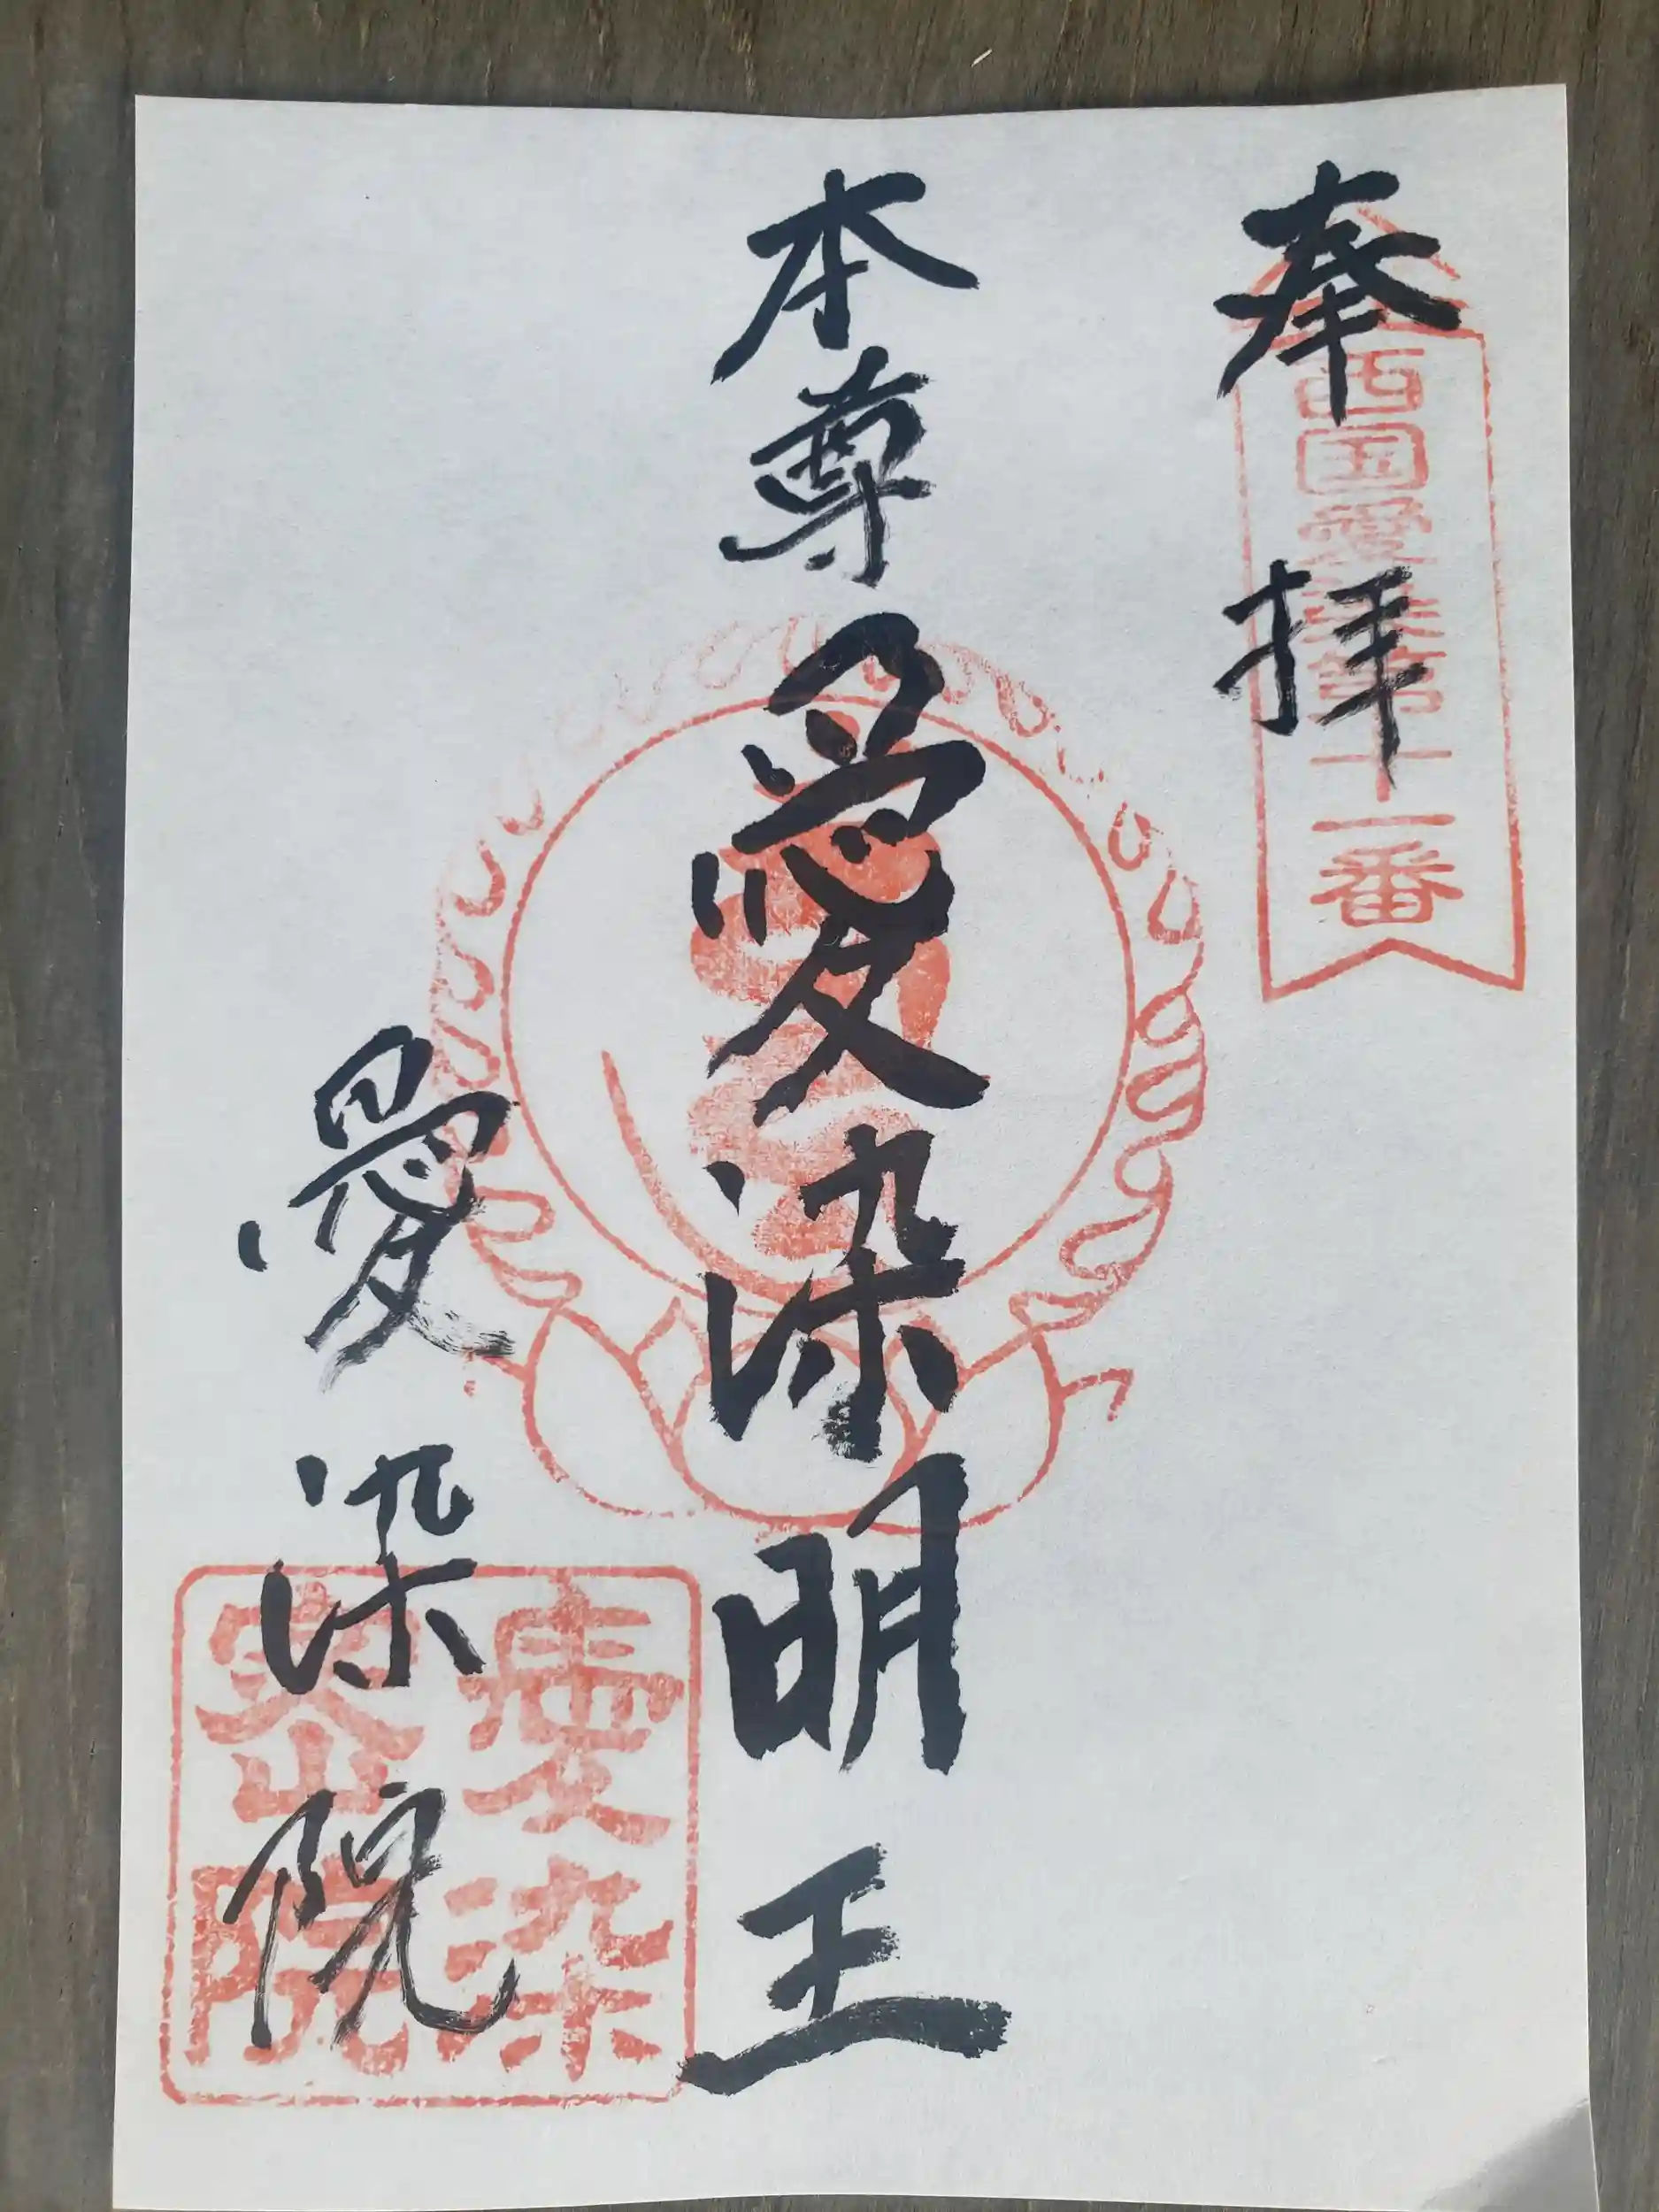 奉拝
西国愛染第十一番
本尊愛染明王
愛染院
愛染
院